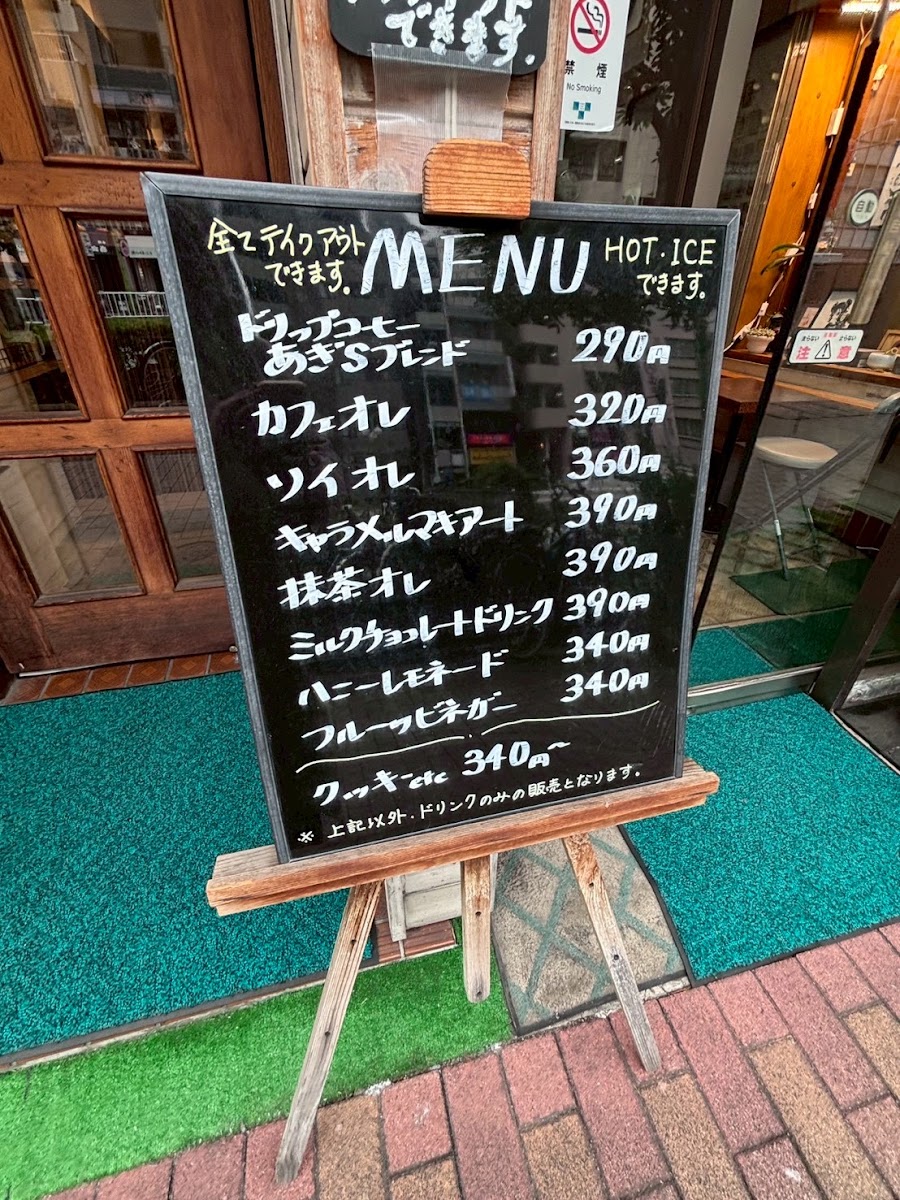 できます。
禁煙
No Smoking
自動
全てテイクアウト
できます。
MENU
HOT・ICE
できます。
ドリップコーヒー
あぎ'Sブレンド 290円
カフェオレ 320円
ソイオレ 360円
キャラメルマキアート 390円
抹茶オレ 390円
ミルクチョコレートドリンク 390円
ハニーレモネード 340円
フルーツビネガー 340円
クッキーetc 340円~
※ 上記以外・ドリンクのみの販売となります。
注意